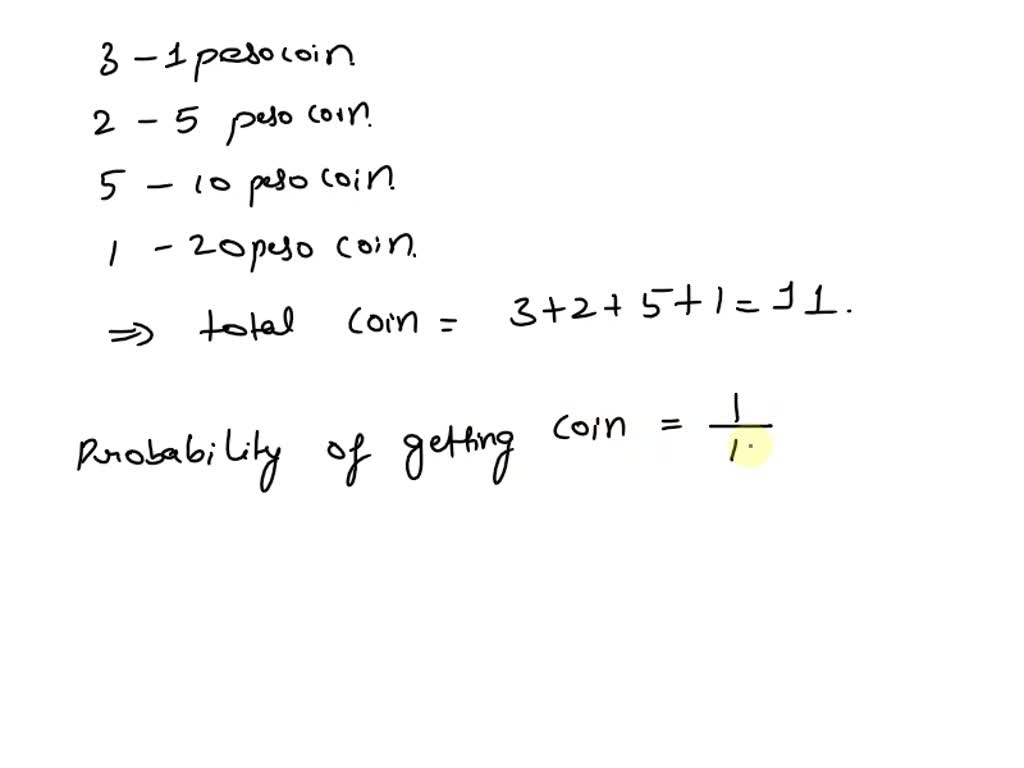 3 - 1 peso coin.
2 - 5 peso coin.
5 - 10 peso coin.
1 - 20 peso coin.
⇒ total coin = 3+2+5+1 = 11.
Probability of getting coin = 1/1